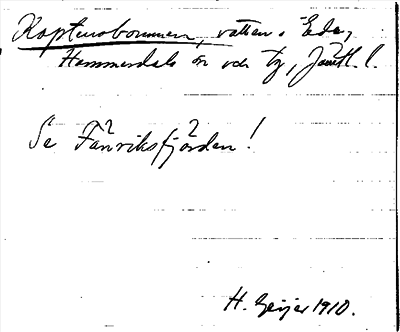 Kaptensbommen, vatten i Ede,
Hammerdals sn och tg, Jämtl. l.
Se Fänriksfjorden!
H. Geijer 1910.